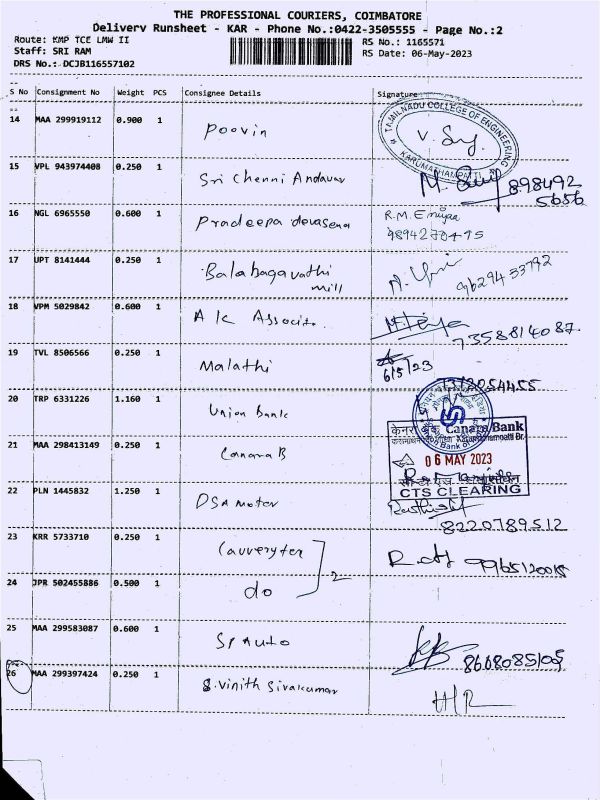 THE PROFESSIONAL COURIERS, COIMBATORE
Delivery Runsheet - KAR - Phone No.:0422-3505555 - Page No.:2
Route: KMP TCE LMW II
RS No.: 1165571
Staff: SRI RAM
RS Date: 06-May-2023
DRS No.: DCJB116557102
S No Consignment No Weight PCS Consignee Details Signature
14 MAA 299919112 0.900 1 Poovin
TAMILNADU COLLEGE OF ENGINEERING
KARUMATHAMPATTI
15 VPL 943974408 0.250 1 Sri Chenni Andavar 898492
5656
16 NGL 6965550 0.600 1 Pradeepa devasena R.M.
9894270495
17 UPT 8141444 0.250 1 Balabagavathi
mill
9629433792
18 VPM 5029842 0.600 1 A K Associts.
7358814087
19 TVL 8506566 0.250 1 Malathi 6/5/23
20 TRP 6331226 1.160 1 Union Bank
केनरा बैंक Canara Bank
21 MAA 298413149 0.250 1 Canara B
06 MAY 2023
CTS CLEARING
22 PLN 1445832 1.250 1 DSA motor
8220789512
23 KRR 5733710 0.250 1 Cauveryter 2
24 JPR 502455886 0.500 1 do
25 MAA 299583087 0.600 1 SP Auto
8668085105
26 MAA 299397424 0.250 1 S. Vinith Sivakumar